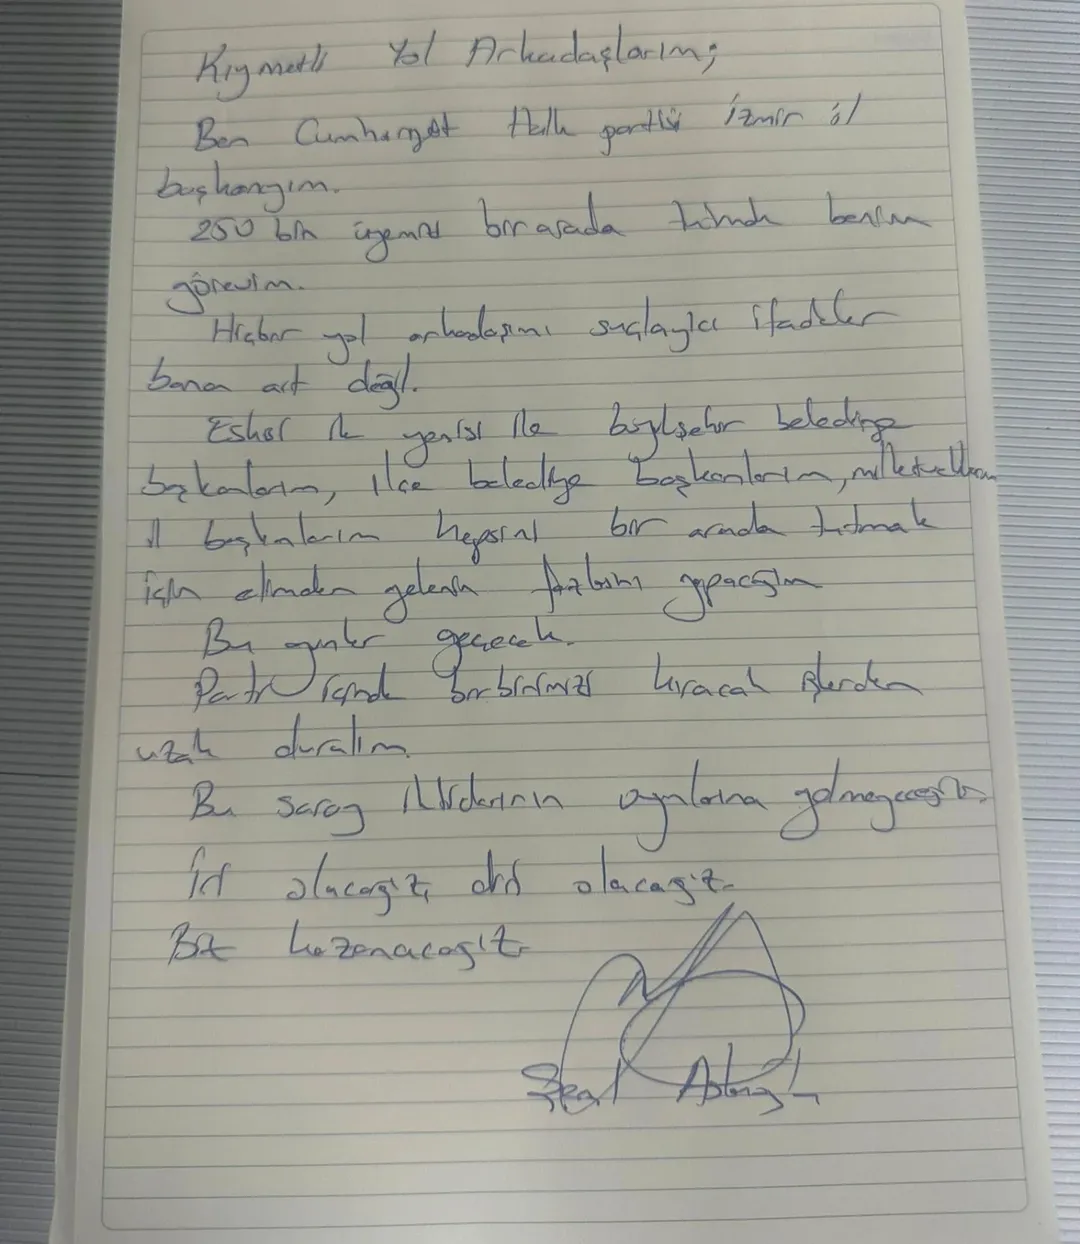 Kıymetli Yol Arkadaşlarım;
Ben Cumhuriyet Halk partisi İzmir il
başkanıyım.
250 bin üyemizi bir arada tutmak benim
görevim.
Hiçbir yol arkadaşımı suçlayıcı ifadeler
bana ait değil.
Eskisi ile yenisi ile büyükşehir belediye
başkanlarım, ilçe belediye başkanlarım, milletvekillerim
il başkanlarım hepsini bir arada tutmak
için elimden gelenin fazlasını yapacağım
Bu günler geçecek.
Parti içinde birbirimizi kıracak işlerden
uzak duralım.
Bu saray iktidarının oyunlarına gelmeyeceğiz.
İri olacağız, diri olacağız.
Biz kazanacağız.